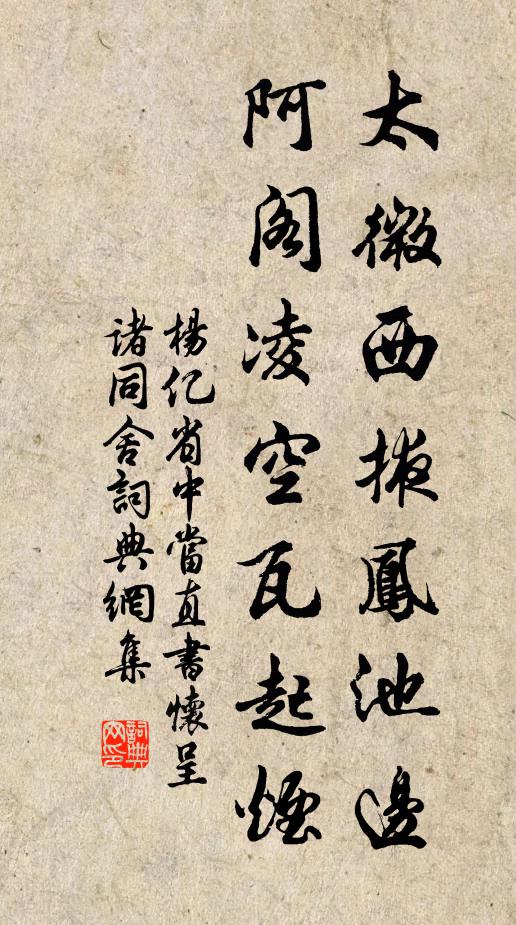 太微西掖鳳池邊
阿阁凌空瓦起煙
楊亿省中當直書懷呈
諸同舍詞典網集
詞典
网印